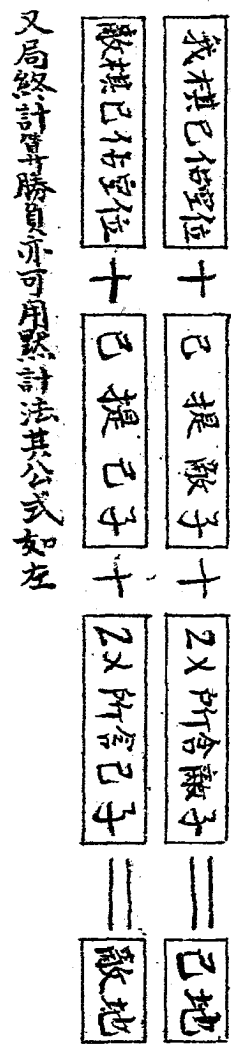 我棋已佔空位 + 已提敵子 + 2×所含敵子 = 己地
敵棋已佔空位 + 已提己子 + 2×所含己子 = 敵地
又局終計算勝負亦可用點計法其公式如左